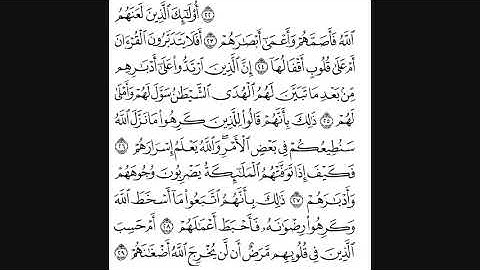 ٢٢ أُوْلَٰٓئِكَ ٱلَّذِينَ لَعَنَهُمُ
ٱللَّهُ فَأَصَمَّهُمْ وَأَعْمَىٰٓ أَبْصَٰرَهُمْ ٢٣ أَفَلَا يَتَدَبَّرُونَ ٱلْقُرْءَانَ
أَمْ عَلَىٰ قُلُوبٍ أَقْفَالُهَآ ٢٤ إِنَّ ٱلَّذِينَ ٱرْتَدُّوا۟ عَلَىٰٓ أَدْبَٰرِهِم
مِّنۢ بَعْدِ مَا تَبَيَّنَ لَهُمُ ٱلْهُدَى ٱلشَّيْطَٰنُ سَوَّلَ لَهُمْ وَأَمْلَىٰ
لَهُمْ ٢٥ ذَٰلِكَ بِأَنَّهُمْ قَالُوا۟ لِلَّذِينَ كَرِهُوا۟ مَا نَزَّلَ ٱللَّهُ
سَنُطِيعُكُمْ فِى بَعْضِ ٱلْأَمْرِ ۖ وَٱللَّهُ يَعْلَمُ إِسْرَارَهُمْ ٢٦
فَكَيْفَ إِذَا تَوَفَّتْهُمُ ٱلْمَلَٰٓئِكَةُ يَضْرِبُونَ وُجُوهَهُمْ
وَأَدْبَٰرَهُمْ ٢٧ ذَٰلِكَ بِأَنَّهُمُ ٱتَّبَعُوا۟ مَآ أَسْخَطَ ٱللَّهَ
وَكَرِهُوا۟ رِضْوَٰنَهُۥ فَأَحْبَطَ أَعْمَٰلَهُمْ ٢٨ أَمْ حَسِبَ
ٱلَّذِينَ فِى قُلُوبِهِم مَّرَضٌ أَن لَّن يُخْرِجَ ٱللَّهُ أَضْغَٰنَهُمْ ٢٩